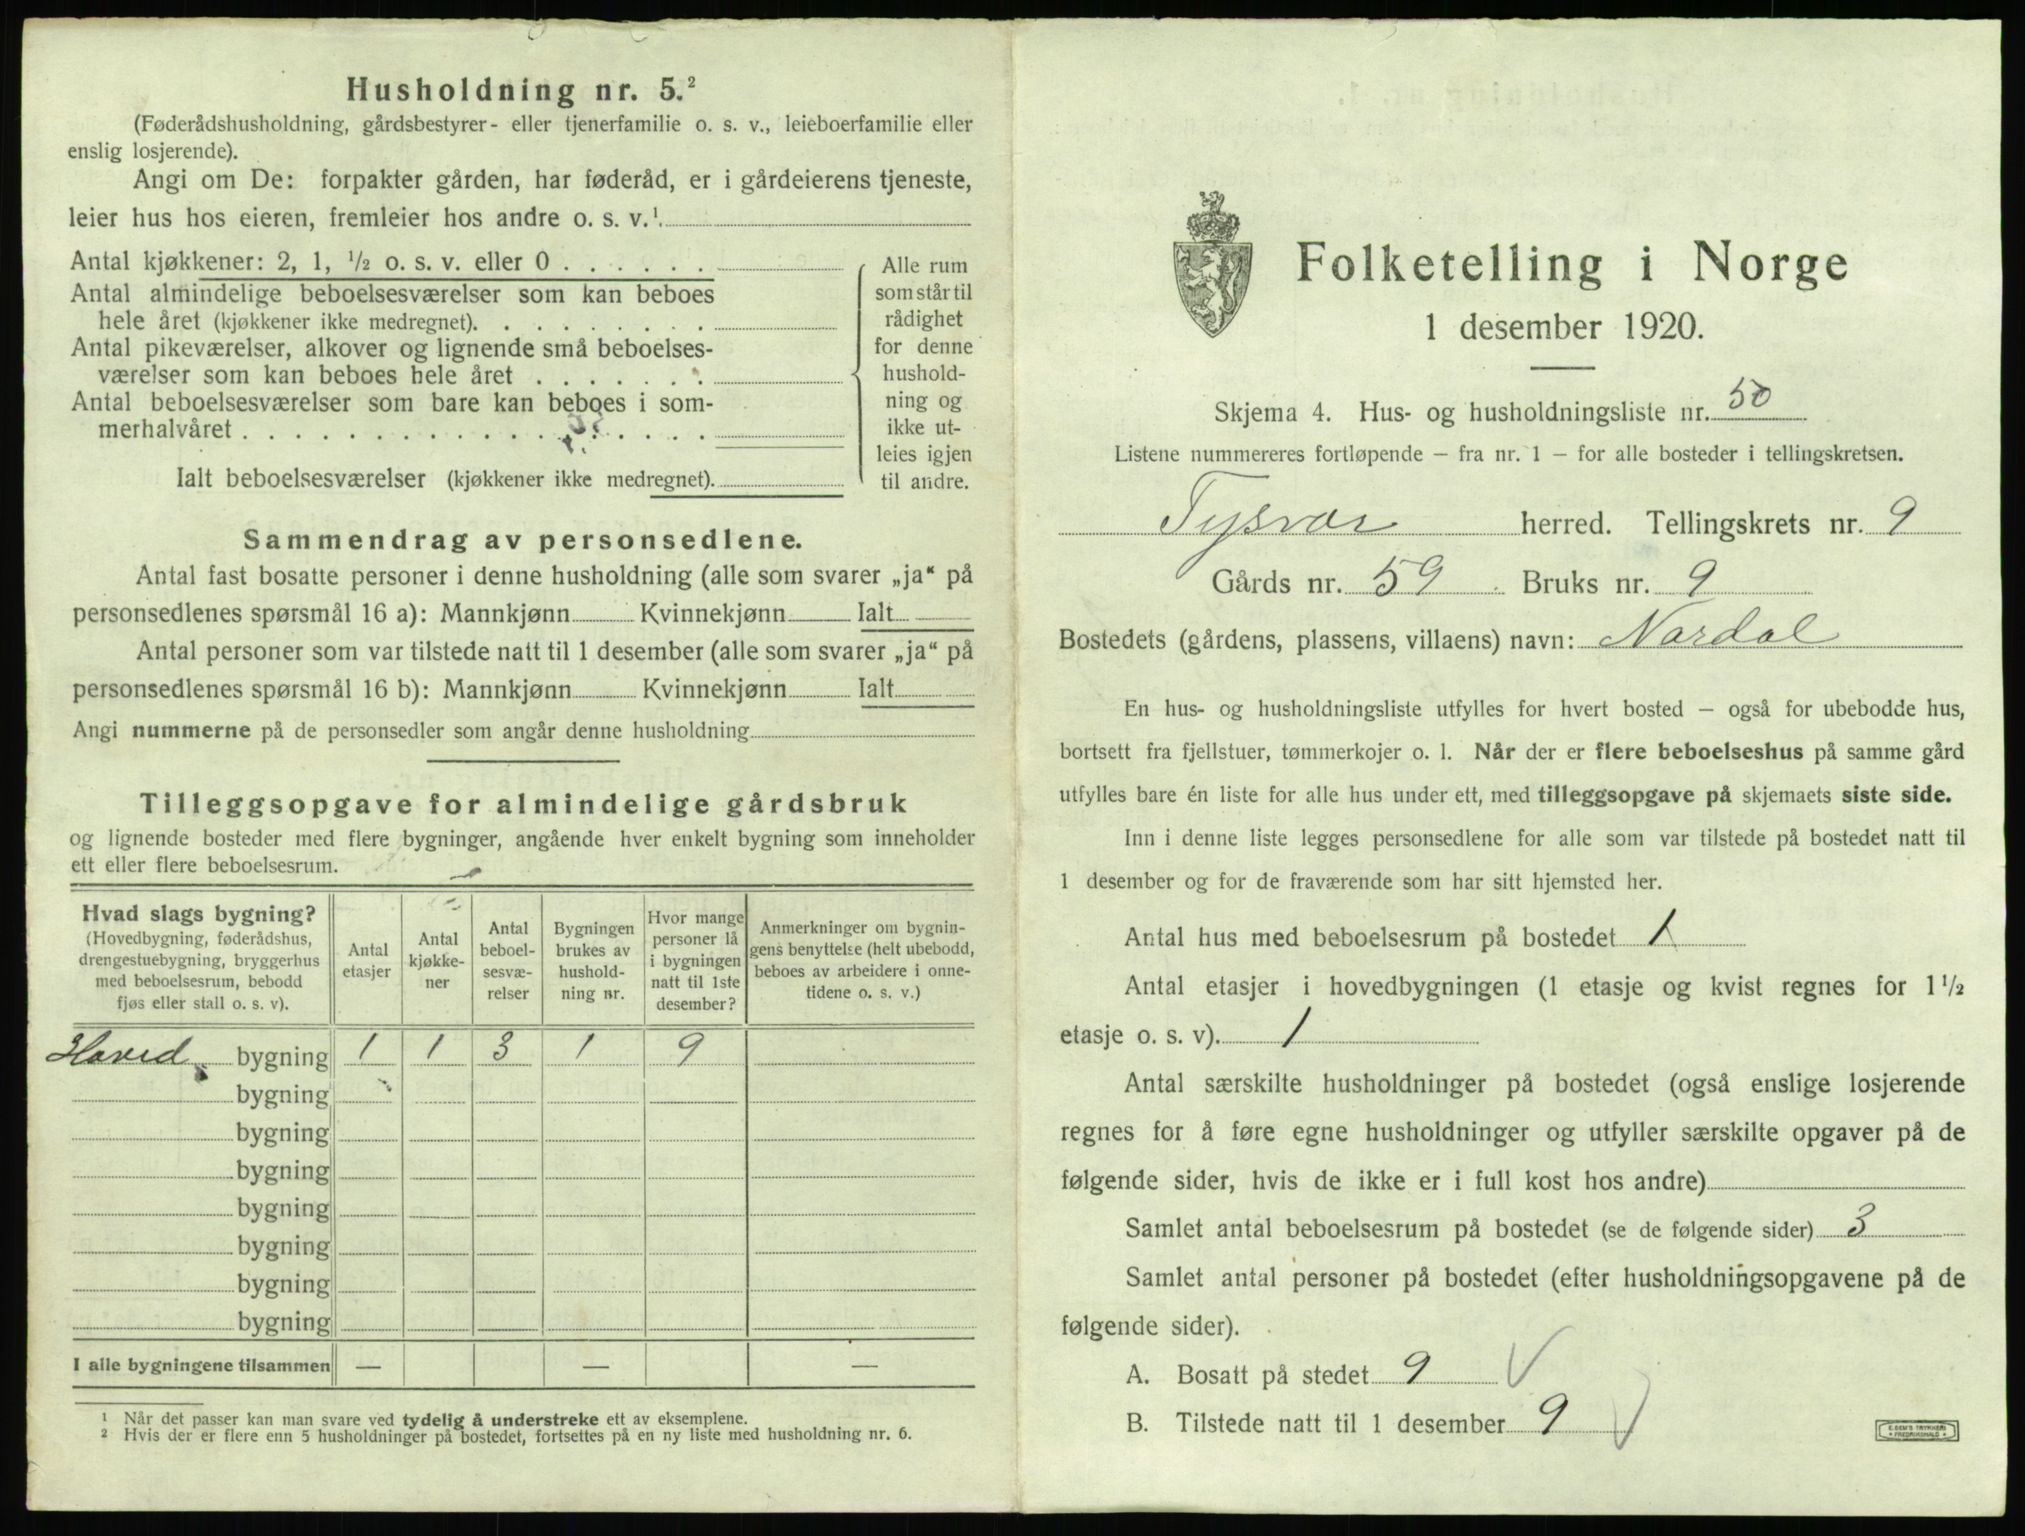 Husholdning nr. 5.²
(Føderådshusholdning, gårdsbestyrer- eller tjenerfamilie o. s. v., leieboerfamilie eller
enslig losjerende).
Angi om De: forpakter gården, har føderåd, er i gårdeierens tjeneste,
leier hus hos eieren, fremleier hos andre o. s. v.¹
Antal kjøkkener: 2, 1, ½ o. s. v. eller 0 . . . . . .
Antal almindelige beboelsesværelser som kan beboes
hele året (kjøkkener ikke medregnet). . . . . . . . . .
Antal pikeværelser, alkover og lignende små beboelses-
værelser som kan beboes hele året . . . . . . .
Antal beboelsesværelser som bare kan beboes i som-
merhalvåret . . . . . . . . . . . . . . . . . .
Ialt beboelsesværelser (kjøkkener ikke medregnet).
Alle rum
som står til
rådighet
for denne
hushold-
ning og
ikke ut-
leies igjen
til andre.
Sammendrag av personsedlene.
Antal fast bosatte personer i denne husholdning (alle som svarer „ja“ på
personsedlenes spørsmål 16 a): Mannkjønn Kvinnekjønn Ialt
Antal personer som var tilstede natt til 1 desember (alle som svarer „ja“ på
personsedlenes spørsmål 16 b): Mannkjønn Kvinnekjønn Ialt
Angi nummerne på de personsedler som angår denne husholdning
Tilleggsopgave for almindelige gårdsbruk
og lignende bosteder med flere bygninger, angående hver enkelt bygning som inneholder
ett eller flere beboelsesrum.
Hvad slags bygning?
(Hovedbygning, føderådshus,
drengestuebygning, bryggerhus
med beboelsesrum, bebodd
fjøs eller stall o. s. v).
Antal
etasjer
Antal
kjøkke-
ner
Antal
beboel-
sesvæ-
relser
Bygningen
brukes av
hushold-
ning nr.
Hvor mange
personer lå
i bygningen
natt til 1ste
desember?
Anmerkninger om bygnin-
gens benyttelse (helt ubebodd,
beboes av arbeidere i onne-
tidene o. s. v.)
Hoved bygning 1 1 3 1 9
bygning
bygning
bygning
bygning
bygning
bygning
bygning
I alle bygningene tilsammen — — —
¹ Når det passer kan man svare ved tydelig å understreke ett av eksemplene.
² Hvis der er flere enn 5 husholdninger på bostedet, fortsettes på en ny liste med husholdning nr. 6.
Folketelling i Norge
1 desember 1920.
Skjema 4. Hus- og husholdningsliste nr. 50
Listene nummereres fortløpende — fra nr. 1 — for alle bosteder i tellingskretsen.
Tysvær herred. Tellingskrets nr. 9
Gårds nr. 59 . Bruks nr. 9
Bostedets (gårdens, plassens, villaens) navn: Nordal
En hus- og husholdningsliste utfylles for hvert bosted — også for ubebodde hus,
bortsett fra fjellstuer, tømmerkojer o. l. Når der er flere beboelseshus på samme gård
utfylles bare én liste for alle hus under ett, med tilleggsopgave på skjemaets siste side.
Inn i denne liste legges personsedlene for alle som var tilstede på bostedet natt til
1 desember og for de fraværende som har sitt hjemsted her.
Antal hus med beboelsesrum på bostedet 1
Antal etasjer i hovedbygningen (1 etasje og kvist regnes for 1½
etasje o. s. v). 1
Antal særskilte husholdninger på bostedet (også enslige losjerende
regnes for å føre egne husholdninger og utfyller særskilte opgaver på de
følgende sider, hvis de ikke er i full kost hos andre)
Samlet antal beboelsesrum på bostedet (se de følgende sider) 3
Samlet antal personer på bostedet (efter husholdningsopgavene på de
følgende sider).
A. Bosatt på stedet 9
B. Tilstede natt til 1 desember 9